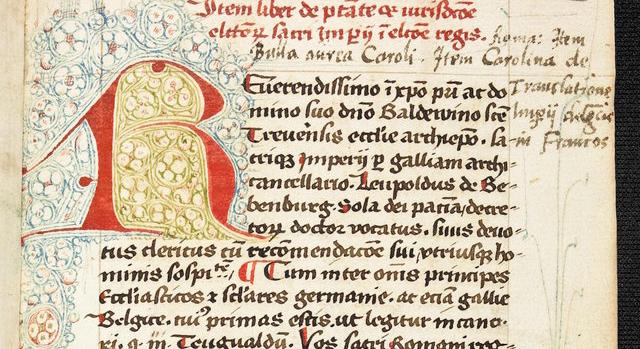 Item liber de ptāte & iurisdcōe
elctoꝝ sacri Impꝫ i elcōe regis.
Roma: Item
Bulla aurea Caroli. Item Carolina de
Translatione
Impꝫ
in Francos
Reuerendissimo ī xp̄o pat̄i ac do
mino suo dn̄o Baldewino scē
Treuensis ecclīe archiep̄o. sa
criqꝫ Imperij ꝑ galliam archi
cancellario. Leupoldus de Be-
benburg. Sola dei patiā, decre-
toꝝ doctor vocatus. suus deuo-
tus clericus cū recōmendacōe sui, vtriusqꝫ ho-
minis sospitē, ¶ Cum inter om̄is principes
Ecclīasticos & sclāres germanie. ac eciā gallie
Belgice. tui primas estis. ut legitur in cano-
ri. q. iii. Teugualdū. Vos sacri Romani reg-